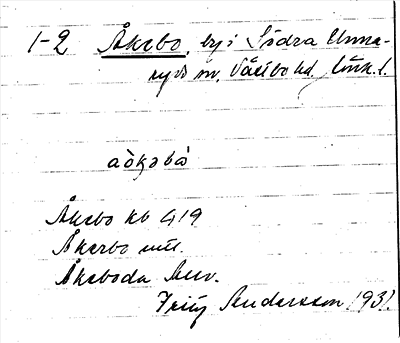 1-2 Åkebo, by i Södra Unna-
ryds sn, Västbo hd, Jönk. l.
Åkebo kb 419
Åkerbo
Åkeboda
Fritz Andersson 1931.